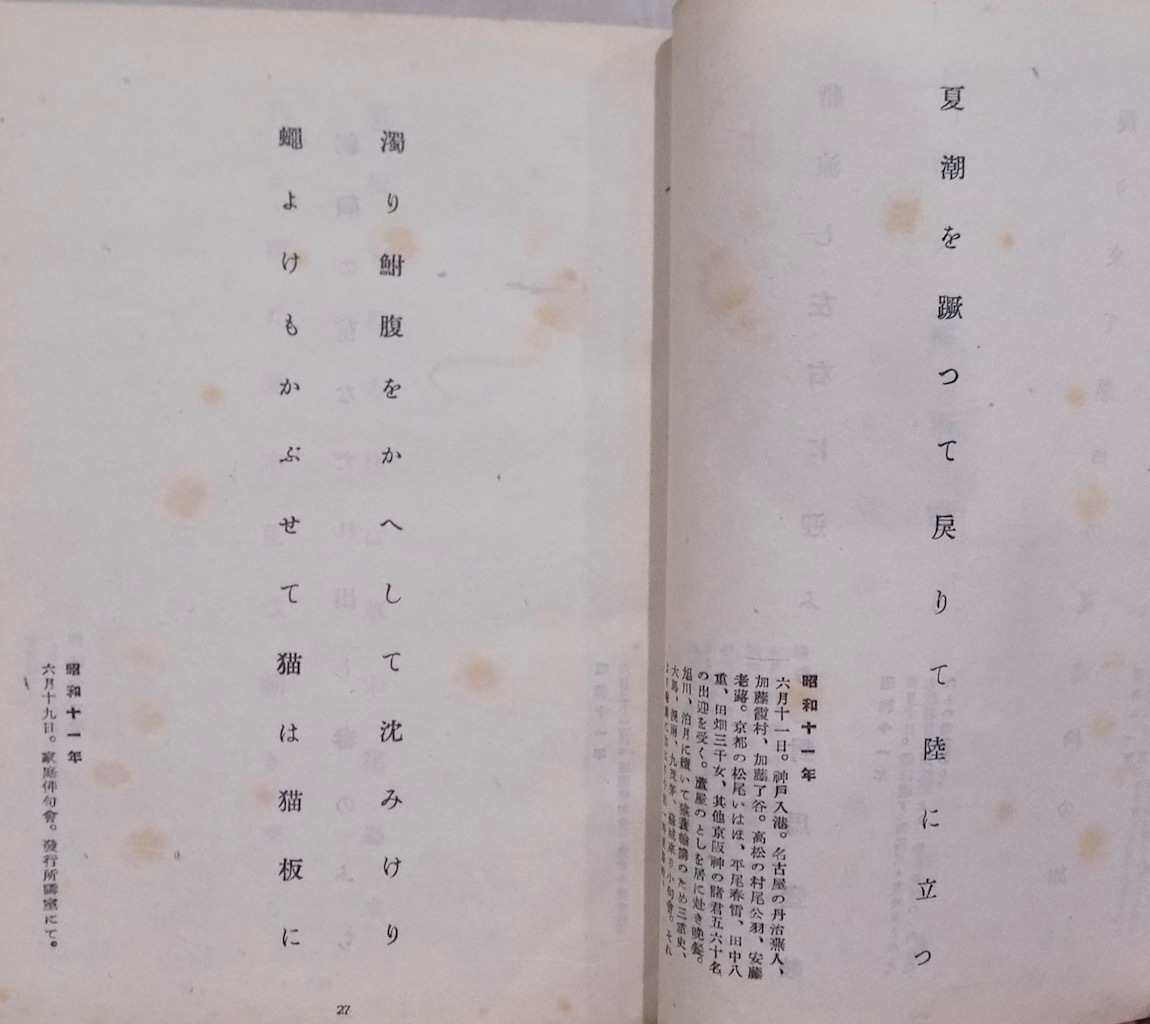 夏潮を蹶つて戻りて陸に立つ
昭和十一年
六月十一日。神戸入港。名古屋の丹治蕪人、
加藤霞村、加藤了谷。高松の村尾公羽、安藤
老蕗。京都の松尾いはほ、平尾春雷、田中八
重、田畑三千女、其他京阪神の諸君五六十名
の出迎を受く。蘆屋のとしを居に赴き晩餐。
旭川、泊月に續いて
のため三重史、
小句會。それ
濁り鮒腹をかへして沈みけり
蠅よけもかぶせて猫は猫板に
昭和十一年
六月十九日。家庭俳句會。發行所隣室にて。
27